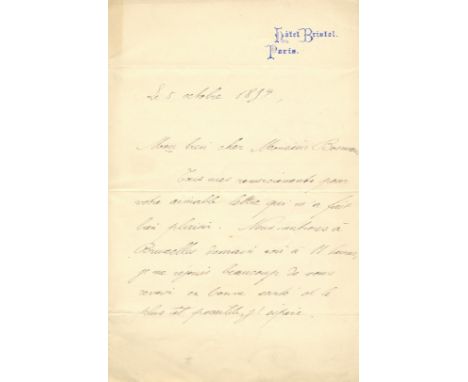 Hôtel Bristol.
Paris.
Le 5 octobre 1897,
Mon bien cher Monsieur
Tous mes remerciements pour
votre aimable lettre qui m'a fait
bien plaisir. Nous rentrons à
Bruxelles demain soir à 11 heures,
je me réjouis beaucoup de vous
revoir en bonne santé et le
plus tôt possible, j'espère.